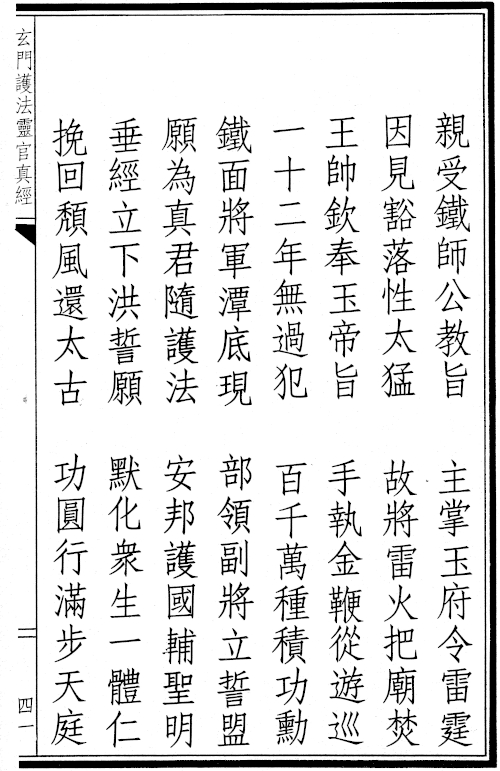 親受鐵師公教旨　主掌玉府令雷霆
因見豁落性太猛　故將雷火把廟焚
王帥欽奉玉帝旨　手執金鞭從遊巡
一十二年無過犯　百千萬種積功勳
鐵面將軍潭底現　部領副將立誓盟
願為真君隨護法　安邦護國輔聖明
垂經立下洪誓願　默化衆生一體仁
挽回頹風還太古　功圓行滿步天庭
玄門護法靈官真經　二　四一